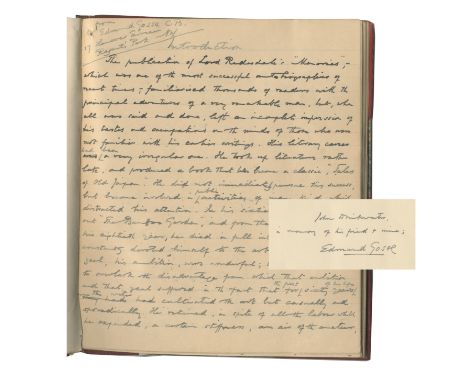 from
Edmund Gosse C.B.
17
Regent's Park NW
Introduction
The publication of Lord Redesdale's "Memories",-
which was one of the most successful autobiographies of
recent times,- familiarised thousands of readers with the
principal adventures of a very remarkable man, but, when
all was said and done, left an incomplete impression of
his tastes and occupations on the minds of those who were
not familiar with his earlier writings. His literary career
had been
a very irregular one. He took up literature rather
late, and produced a book that has become a classic, Tales
of Old Japan. He did not immediately pursue this success,
public
but became involved in activities of many kind which
distracted his attention. In his sixtieth
out The Bamboo Garden, and from that
his eightieth year, he died in full
constantly devoted himself to the art
zeal, his ambition, was wonderful;
to overlook the disadvantage from which that ambition
and that zeal suffered in the fact that for the first sixty years of his life
the writer had cultivated the art but casually and
sporadically. He retained, in spite of all the labour which
he expended, a certain stiffness, an air of the amateur,
John Drinkwater
in memory of his friend & mine;
Edmund Gosse